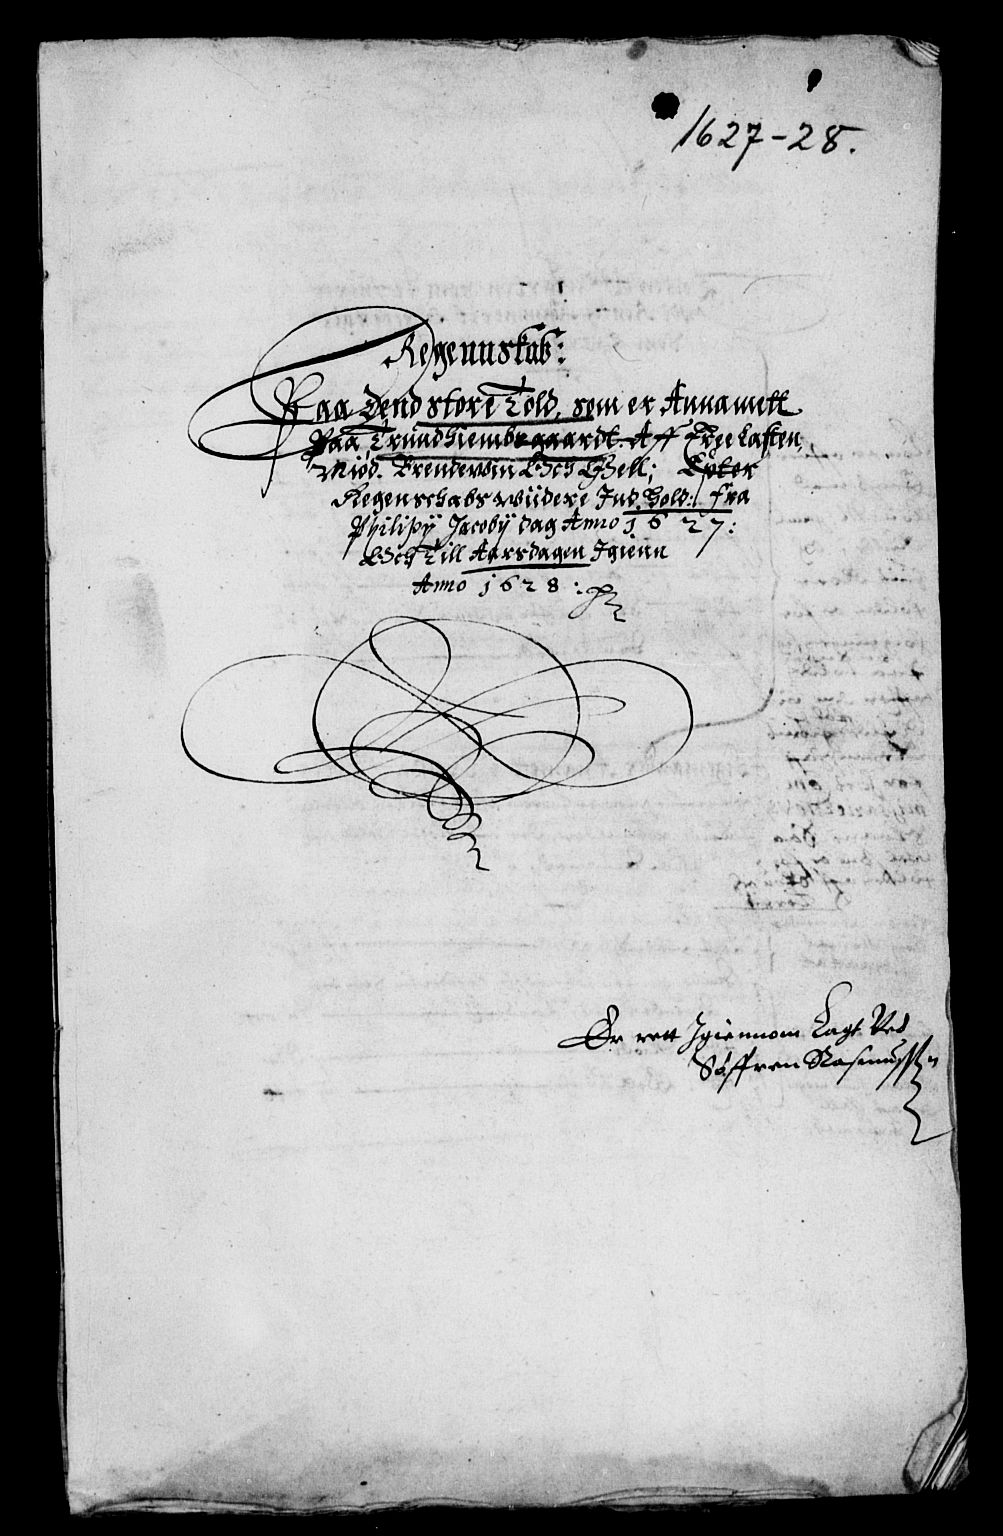 1627-28.
Regennskab:
Paa Dend store Told, som er Annamett
Paa Trundhiembsgaardt. Aff Træelasten,
Miød. Brendewin Och Øell; Epter
Regenschabs wiidere Ind, hold:. fra
Philippj Jacobij dag Anno 1627:
Och Till Aarsdagen Igienn
Anno 1628:
Er rett Igiennom Lagt Ved
Søffren Rasmuss